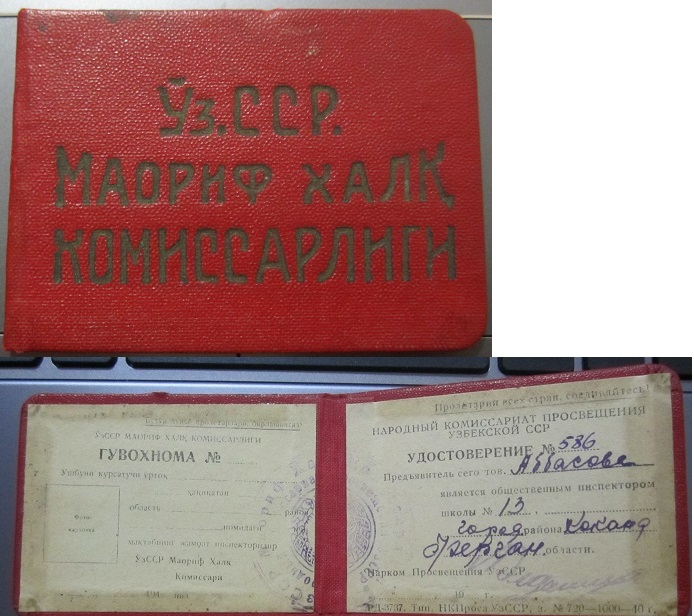 Ўз.ССР.
МАОРИФ ХАЛҚ
КОМИССАРЛИГИ
ЎзССР МАОРИФ ХАЛҚ КОМИССАРЛИГИ
ГУВОХНОМА №
Ушбуни курсатучи ўртоқ
область район
мактабнинг жамоат инспекторидир
ЎзССР Маориф Халқ
Комиссари
194
Пролетарии всех стран, соединяйтесь!
НАРОДНЫЙ КОМИССАРИАТ ПРОСВЕЩЕНИЯ
УЗБЕКСКОЙ ССР
УДОСТОВЕРЕНИЕ № 586
Предъявитель сего тов. Аббасова
является общественным инспектором
школы № 13
город района Коканд
Ферган. области.
Нарком Просвещения УзССР
РД-3737. Тип. НКПроса УзССР. № 720—1000—40 г.